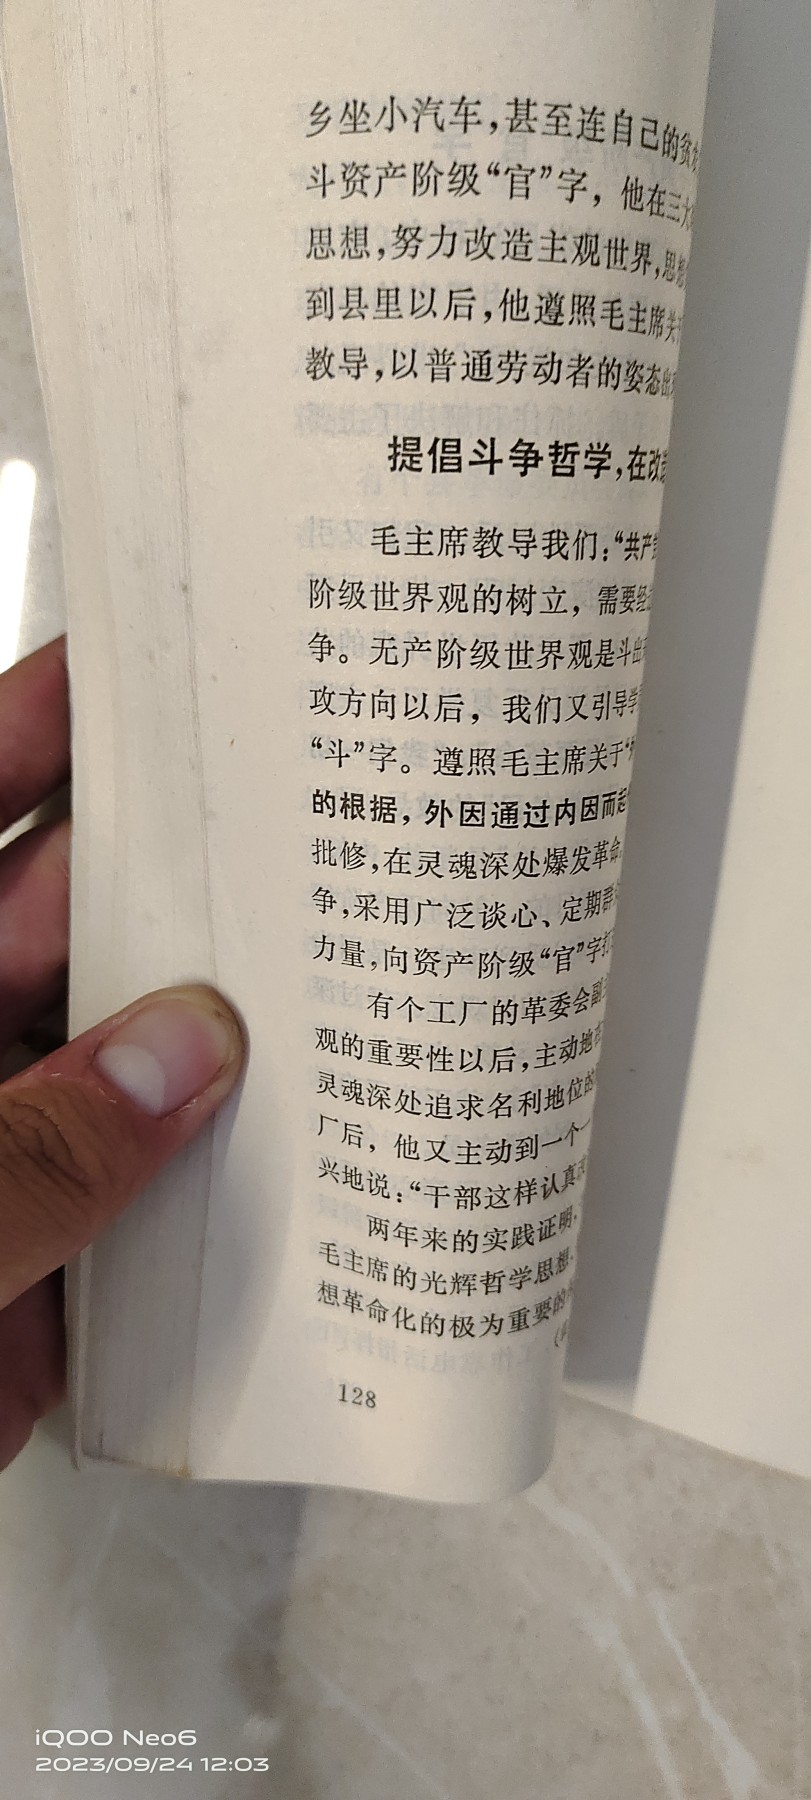 乡坐小汽车,甚至连自己的贫
斗资产阶级“官”字，他在三大
思想,努力改造主观世界,思想
到县里以后,他遵照毛主席关
教导,以普通劳动者的姿态出
提倡斗争哲学,在改造
毛主席教导我们:“共产
阶级世界观的树立，需要经
争。无产阶级世界观是斗出
攻方向以后，我们又引导学
“斗”字。遵照毛主席关于“
的根据，外因通过内因而起
批修,在灵魂深处爆发革命
争,采用广泛谈心、定期群
力量,向资产阶级“官”字打
有个工厂的革委会副
观的重要性以后,主动地
灵魂深处追求名利地位的
厂后，他又主动到一个一
兴地说:“干部这样认真
两年来的实践证明,
毛主席的光辉哲学思想,
想革命化的极为重要的
128
iQOO Neo6
2023/09/24 12:03